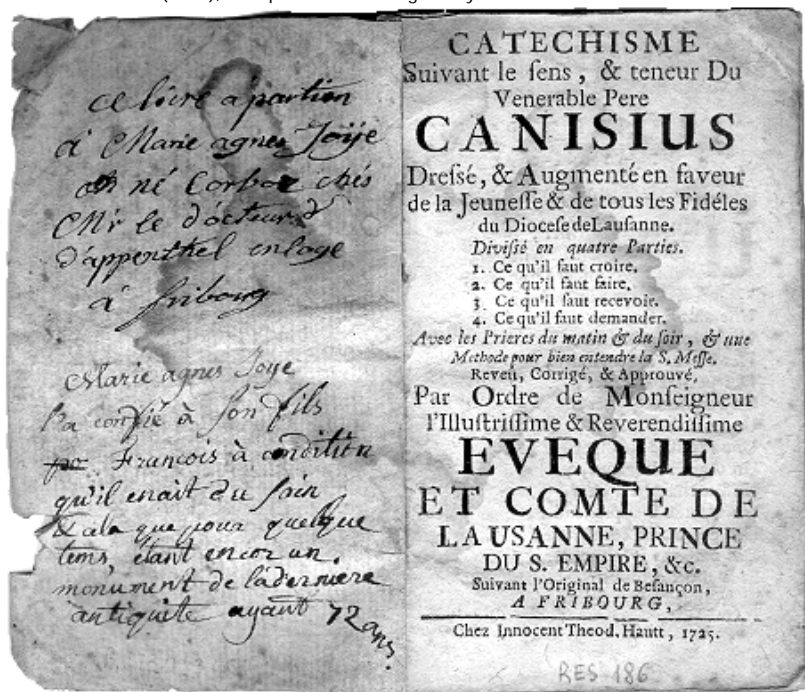 ce livre apartien
à Marie agnes Joÿe
né Corboz chés
Mr le docteur
d'appenthel en loge
à fribourg
Marie agnes Joye
l'a confié à son fils
François à condition
qu'il enait du soin
& cela que pour quelque
tems, étant encor un
monument de la derniere
antiquite ayant 72 ans.
CATECHISME
Suivant le ſens, & teneur Du
Venerable Pere
CANISIUS
Dreſſé, & Augmenté en faveur
de la Jeuneſſe & de tous les Fidéles
du Dioceſe de Lauſanne.
Diviſſé en quatre Parties.
1. Ce qu'il faut croire.
2. Ce qu'il faut faire.
3. Ce qu'il faut recevoir.
4. Ce qu'il faut demander.
Avec les Prieres du matin & du ſoir, & une
Methode pour bien entendre la S. Meſſe.
Reveû, Corrigé, & Approuvé,
Par Ordre de Monſeigneur
l'Illuſtriſſime & Reverendiſſime
EVEQUE
ET COMTE DE
LAUSANNE, PRINCE
DU S. EMPIRE, &c.
Suivant l'Original de Beſançon,
A FRIBOURG,
Chez Innocent Theod. Hautt, 1725.
RES 186